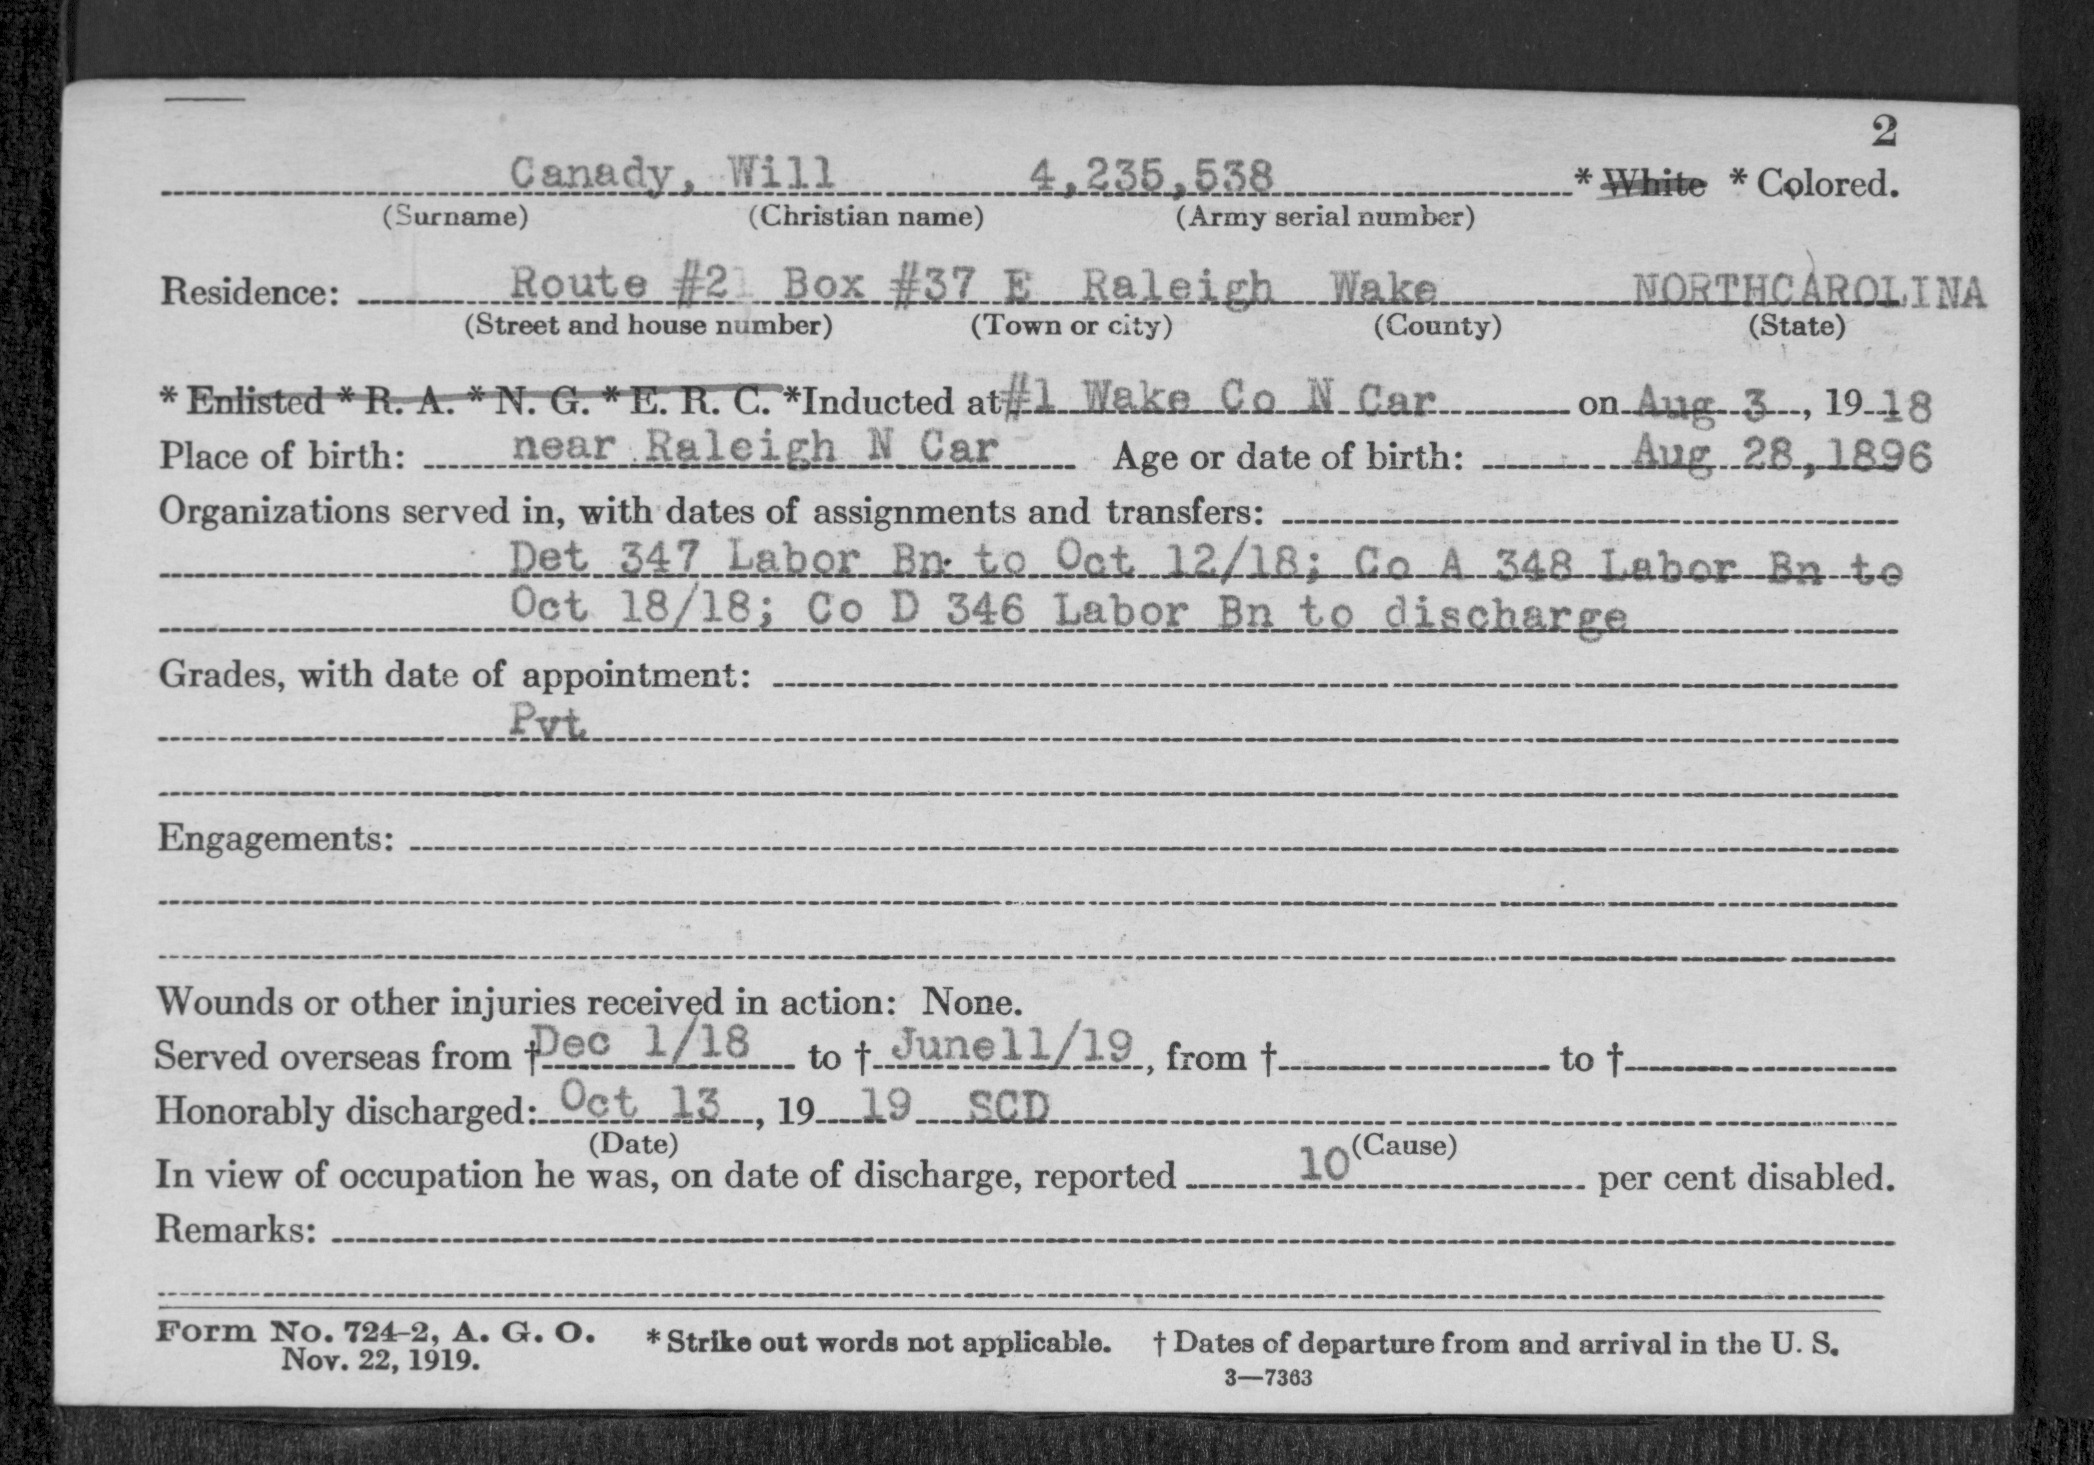 2
Canady, Will 4,235,538 * White * Colored.
(Surname) (Christian name) (Army serial number)
Residence: Route #2 Box #37 E Raleigh Wake NORTHCAROLINA
(Street and house number) (Town or city) (County) (State)
* Enlisted * R. A. * N. G. * E. R. C. *Inducted at #1 Wake Co N Car on Aug 3, 1918
Place of birth: near Raleigh N Car Age or date of birth: Aug 28, 1896
Organizations served in, with dates of assignments and transfers:
Det 347 Labor Bn to Oct 12/18; Co A 348 Labor Bn to
Oct 18/18; Co D 346 Labor Bn to discharge
Grades, with date of appointment:
Pvt
Engagements:
Wounds or other injuries received in action: None.
Served overseas from † Dec 1/18 to † June11/19, from † to †
Honorably discharged: Oct 13, 19 19 SCD
(Date) (Cause)
In view of occupation he was, on date of discharge, reported 10 per cent disabled.
Remarks:
Form No. 724-2, A. G. O. * Strike out words not applicable. † Dates of departure from and arrival in the U. S.
Nov. 22, 1919.
3—7363